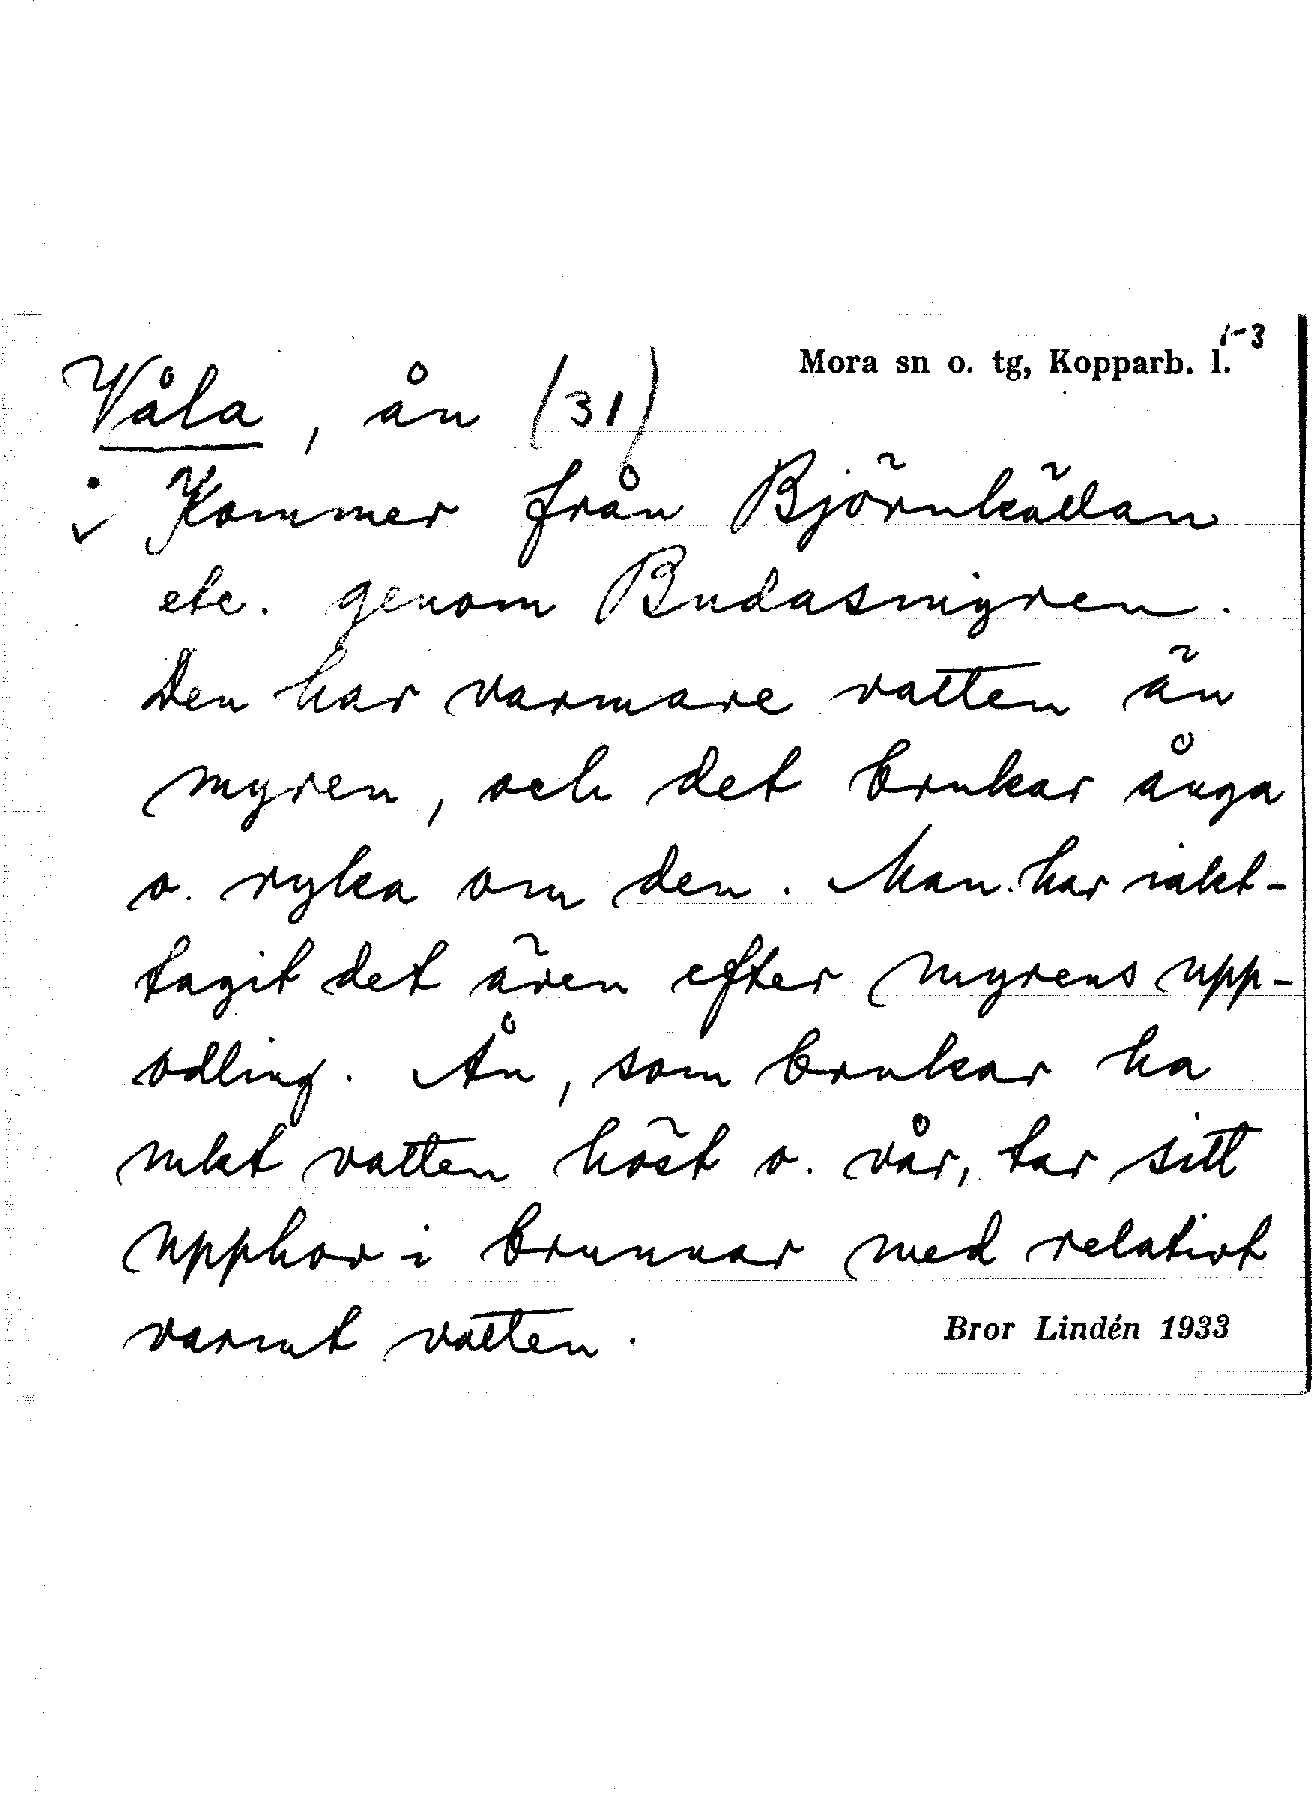 1-3
Mora sn o. tg, Kopparb. l.
Våla, ån (31)
Kommer från Björnkällan
etc. genom Budasmyren.
Den har varmare vatten än
myren, och det brukar ånga
o. ryka om den. Man har iakt-
tagit det även efter myrens upp-
odling. Ån, som brukar ha
mkt vatten höst o. vår, tar sitt
upphov i brunnar med relativt
varmt vatten.
Bror Lindén 1933